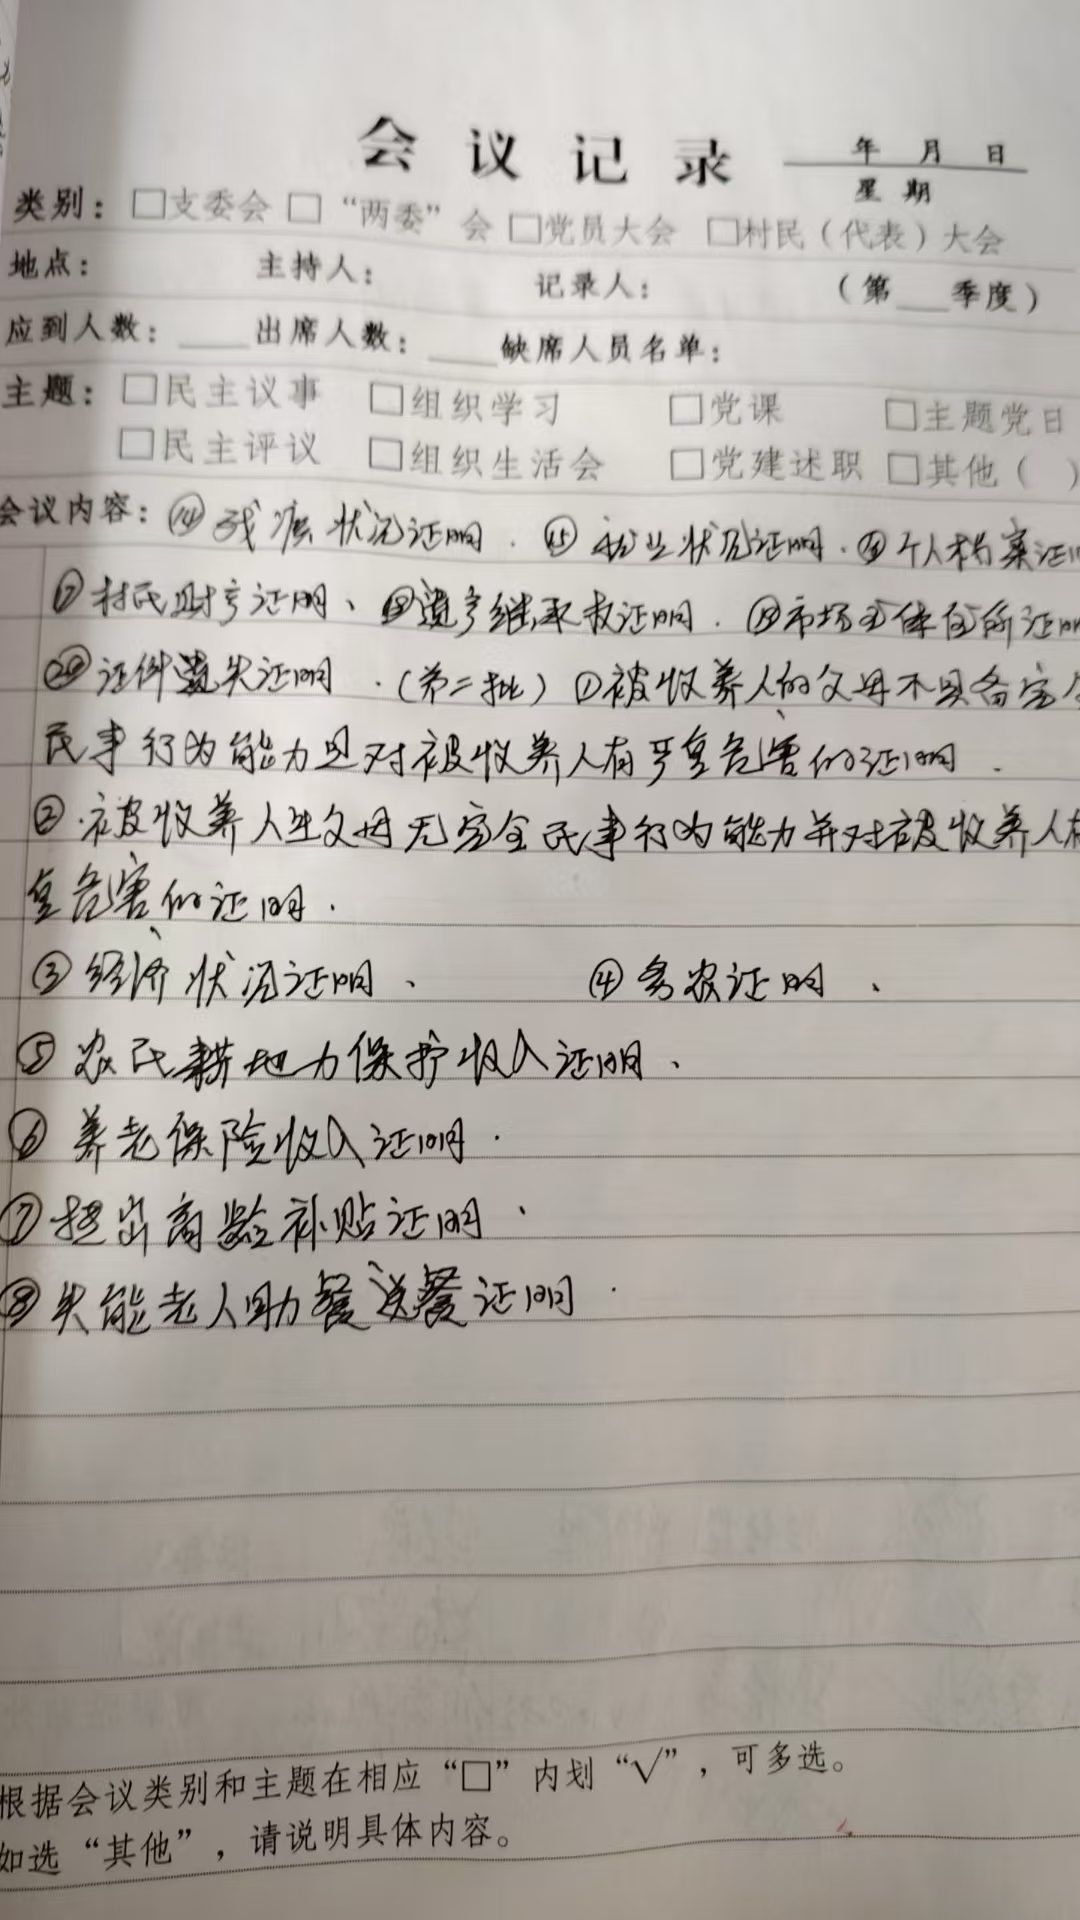 会议记录 年 月 日
星期
类别：□支委会 □“两委”会 □党员大会 □村民（代表）大会
地点： 主持人： 记录人： （第 季度）
应到人数： 出席人数： 缺席人员名单：
主题：□民主议事 □组织学习 □党课 □主题党日
□民主评议 □组织生活会 □党建述职 □其他（ ）
会议内容：⑭残疾状况证明．⑮就业状况证明．⑯个人档案证明
⑰村民财产证明、⑱遗产继承权证明．⑲市场主体住所证明
⑳证件遗失证明．（第二批）①被收养人的父母不具备完全
民事行为能力且对被收养人有严重危害的证明．
②．被收养人生父母无完全民事行为能力并对被收养人有
重危害的证明．
③经济状况证明、 ④务农证明、
⑤农民耕地力保护收入证明、
⑥养老保险收入证明．
⑦ 高龄补贴证明、
⑧失能老人助餐送餐证明．
根据会议类别和主题在相应“□”内划“√”，可多选。
如选“其他”，请说明具体内容。